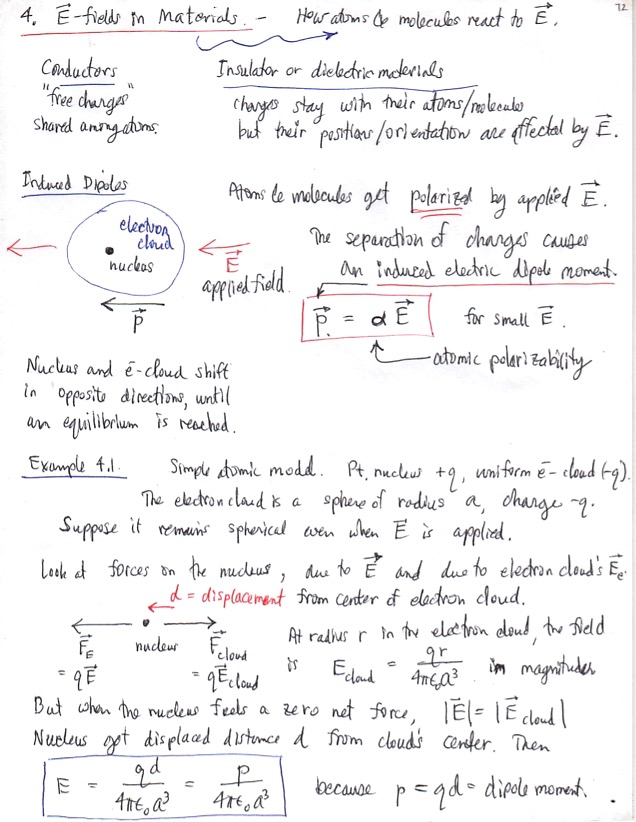 72
4. E⃗-fields in Materials. - How atoms & molecules react to E⃗.
Conductors
"free charges"
shared among atoms.
Insulator or dielectric materials
charges stay with their atoms/molecules
but their positions/orientation are affected by E⃗.
Induced Dipoles
Atoms & molecules get polarized by applied E⃗.
electron
cloud
nucleus
p⃗
E⃗
applied field.
The separation of charges causes
an induced electric dipole moment.
p⃗. = α E⃗ for small E⃗.
atomic polarizability
Nucleus and e⁻-cloud shift
in opposite directions, until
an equilibrium is reached.
Example 4.1. Simple atomic model. Pt. nucleus +q, uniform e⁻-cloud (-q).
The electron cloud is a sphere of radius a, charge -q.
Suppose it remains spherical even when E⃗ is applied.
Look at forces on the nucleus, due to E⃗ and due to electron cloud's E⃗e.
d = displacement from center of electron cloud.
F⃗E nucleus F⃗cloud
= qE⃗ = qE⃗cloud
At radius r in the electron cloud, the field
is Ecloud = qr / 4πε₀a³ in magnitude
But when the nucleus feels a zero net force, |E⃗| = |E⃗cloud|
Nucleus get displaced distance d from cloud's center. Then
E = qd / 4πε₀a³ = p / 4πε₀a³ because p = qd = dipole moment.